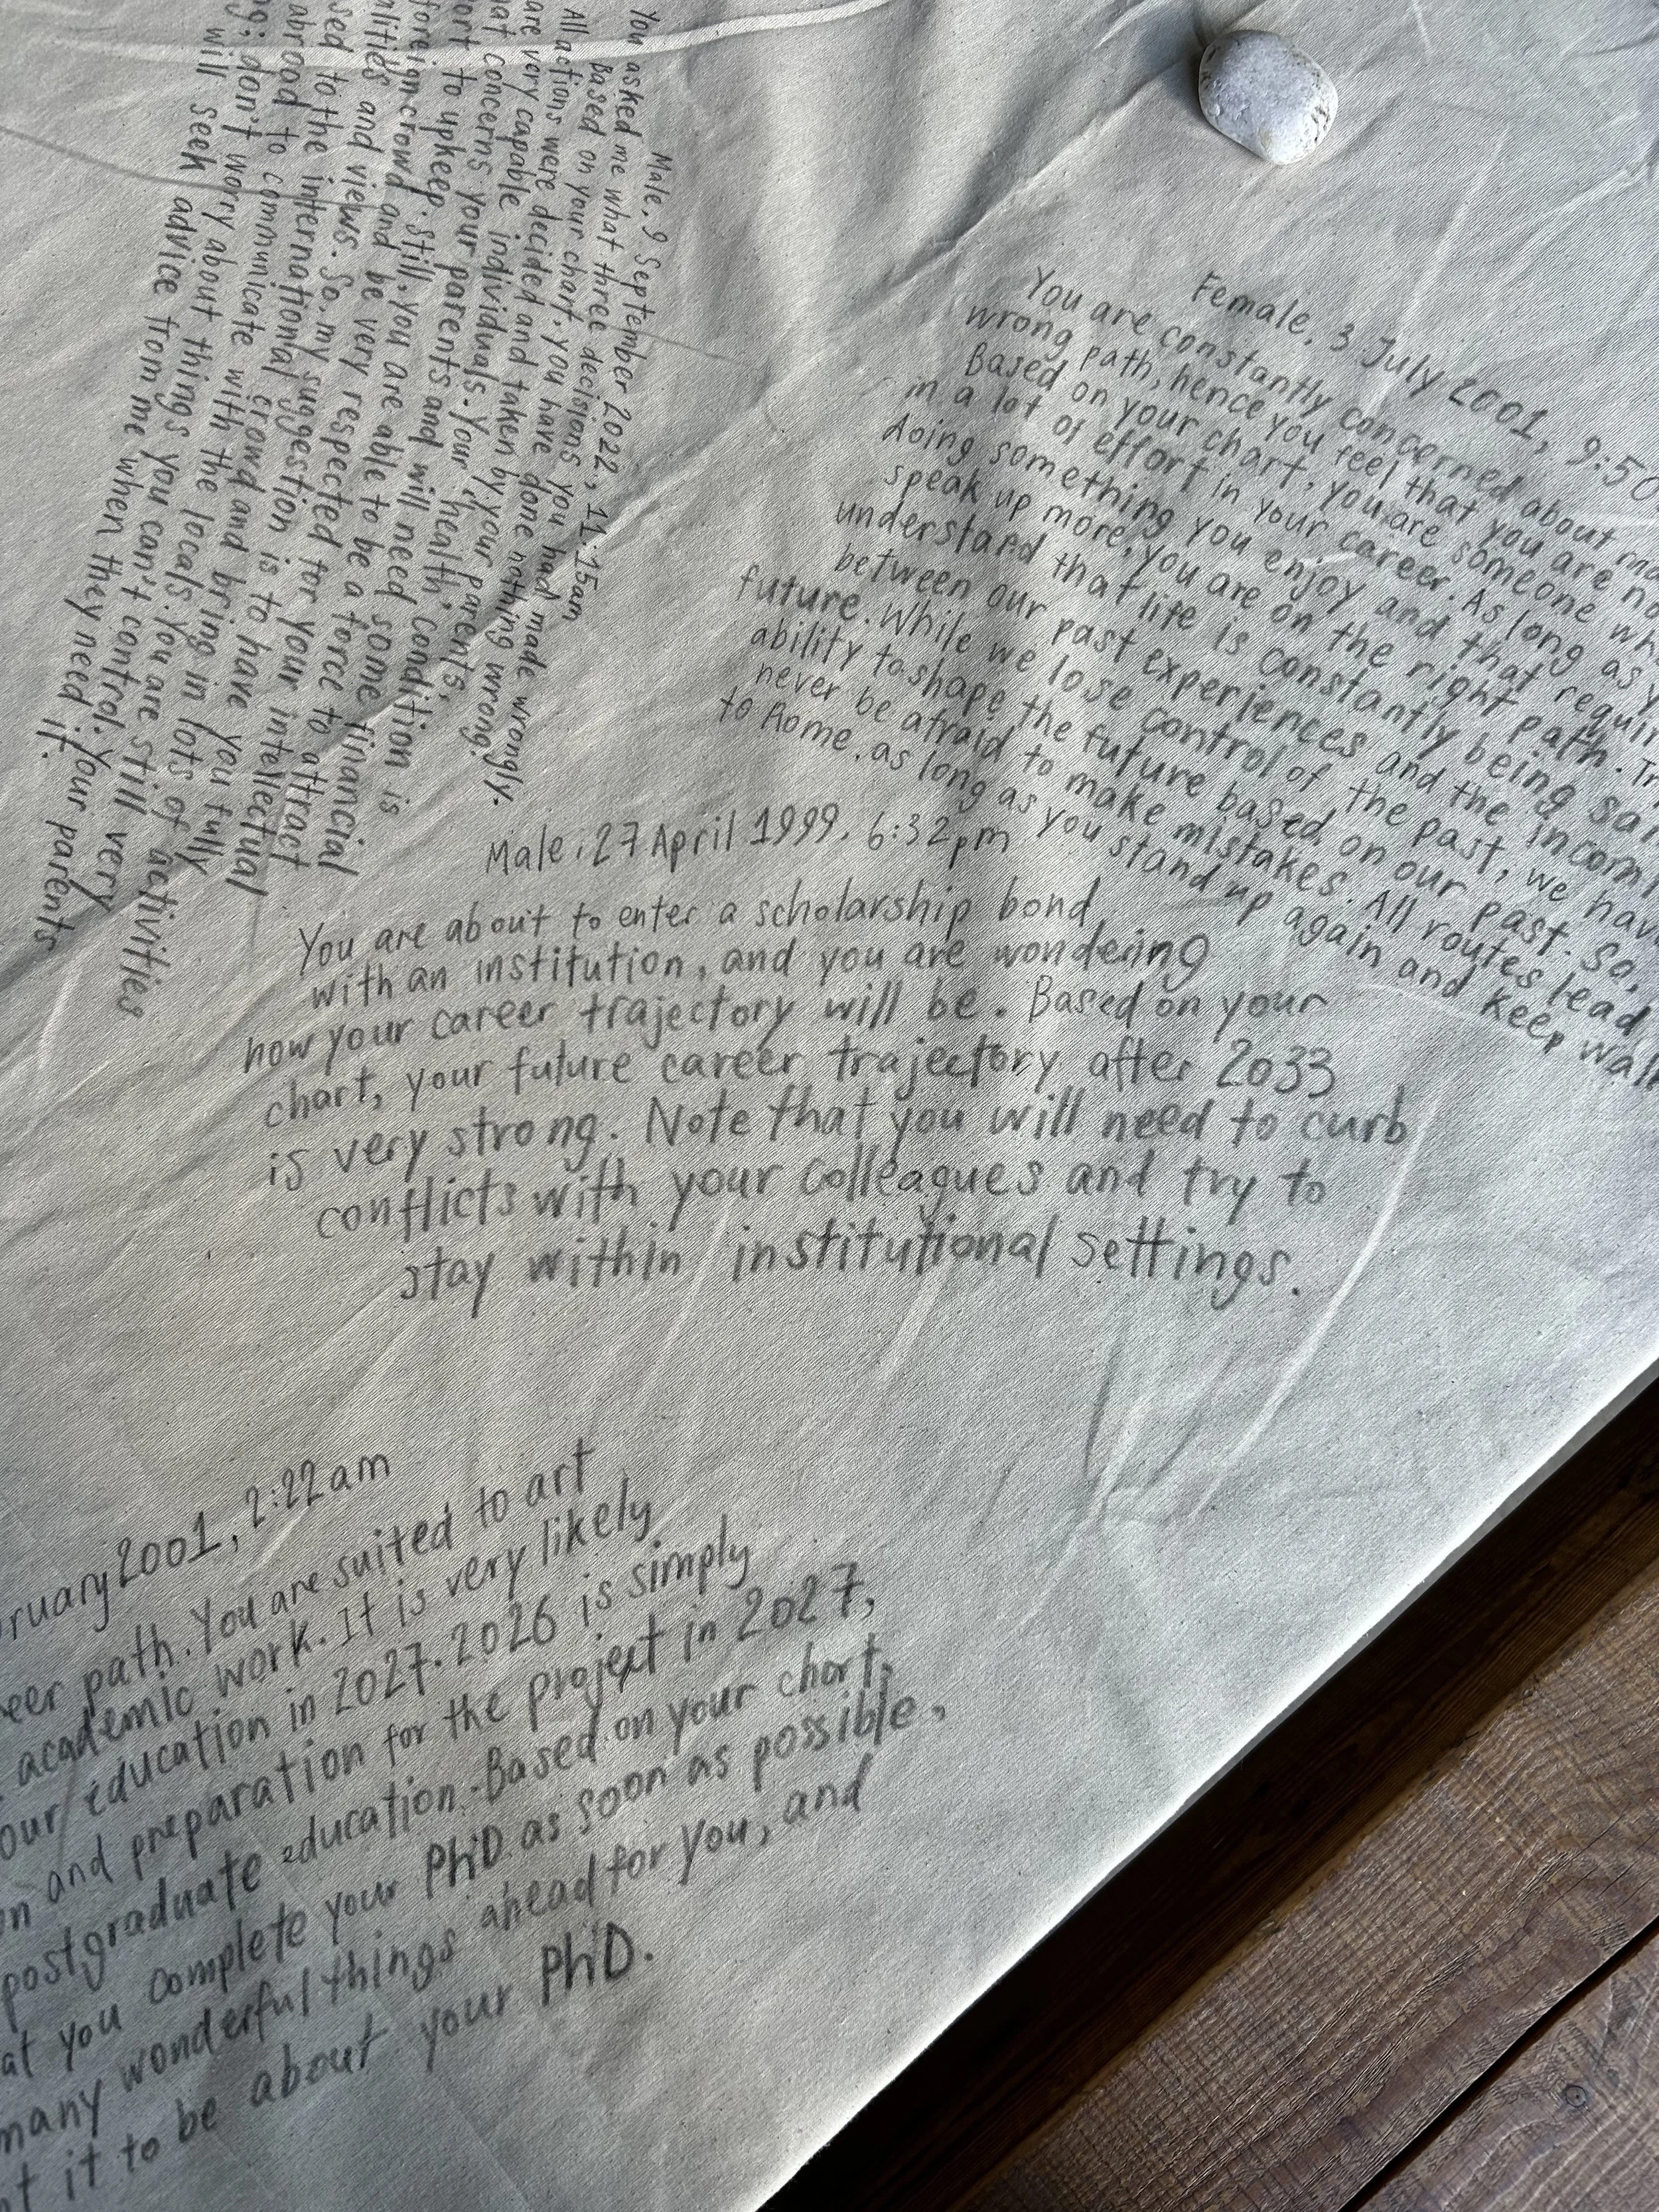 Male, 9 September 2022, 11:15am
You asked me what three decisions you had made wrongly.
Based on your chart, you have done nothing wrong.
All actions were decided and taken by your parents,
are very capable individuals. Your "health" condition is
concerns your parents and will need some financial
to upkeep. Still, you are able to be a force to attract
foreign crowd and be very respected for your intellectual
and views. So, my suggestion is to have you fully
to the international crowd and bring in lots of activities
abroad to communicate with the locals. You are still very
don't worry about things you can't control. Your parents
will seek advice from me when they need it.
Female, 3 July 2001, 9:50
You are constantly concerned about
wrong path, hence you feel that you are
Based on your chart, you are someone
in a lot of effort in your career. As long as
doing something you enjoy and that
speak up more, you are on the right path.
understand that life is constantly being
between our past experiences and the
future. While we lose control of the past, we
ability to shape the future based on our past. So,
never be afraid to make mistakes. All routes lead
to Rome, as long as you stand up again and keep
Male, 27 April 1999, 6:32pm
You are about to enter a scholarship bond
with an institution, and you are wondering
how your career trajectory will be. Based on your
chart, your future career trajectory after 2033
is very strong. Note that you will need to curb
conflicts with your colleagues and try to
stay within institutional settings.
2001, 2:22am
path. You are suited to art
academic work. It is very likely
education in 2027. 2026 is simply
and preparation for the project in 2027,
postgraduate education. Based on your chart,
you complete your PhD as soon as possible.
many wonderful things ahead for you, and
it to be about your PhD.